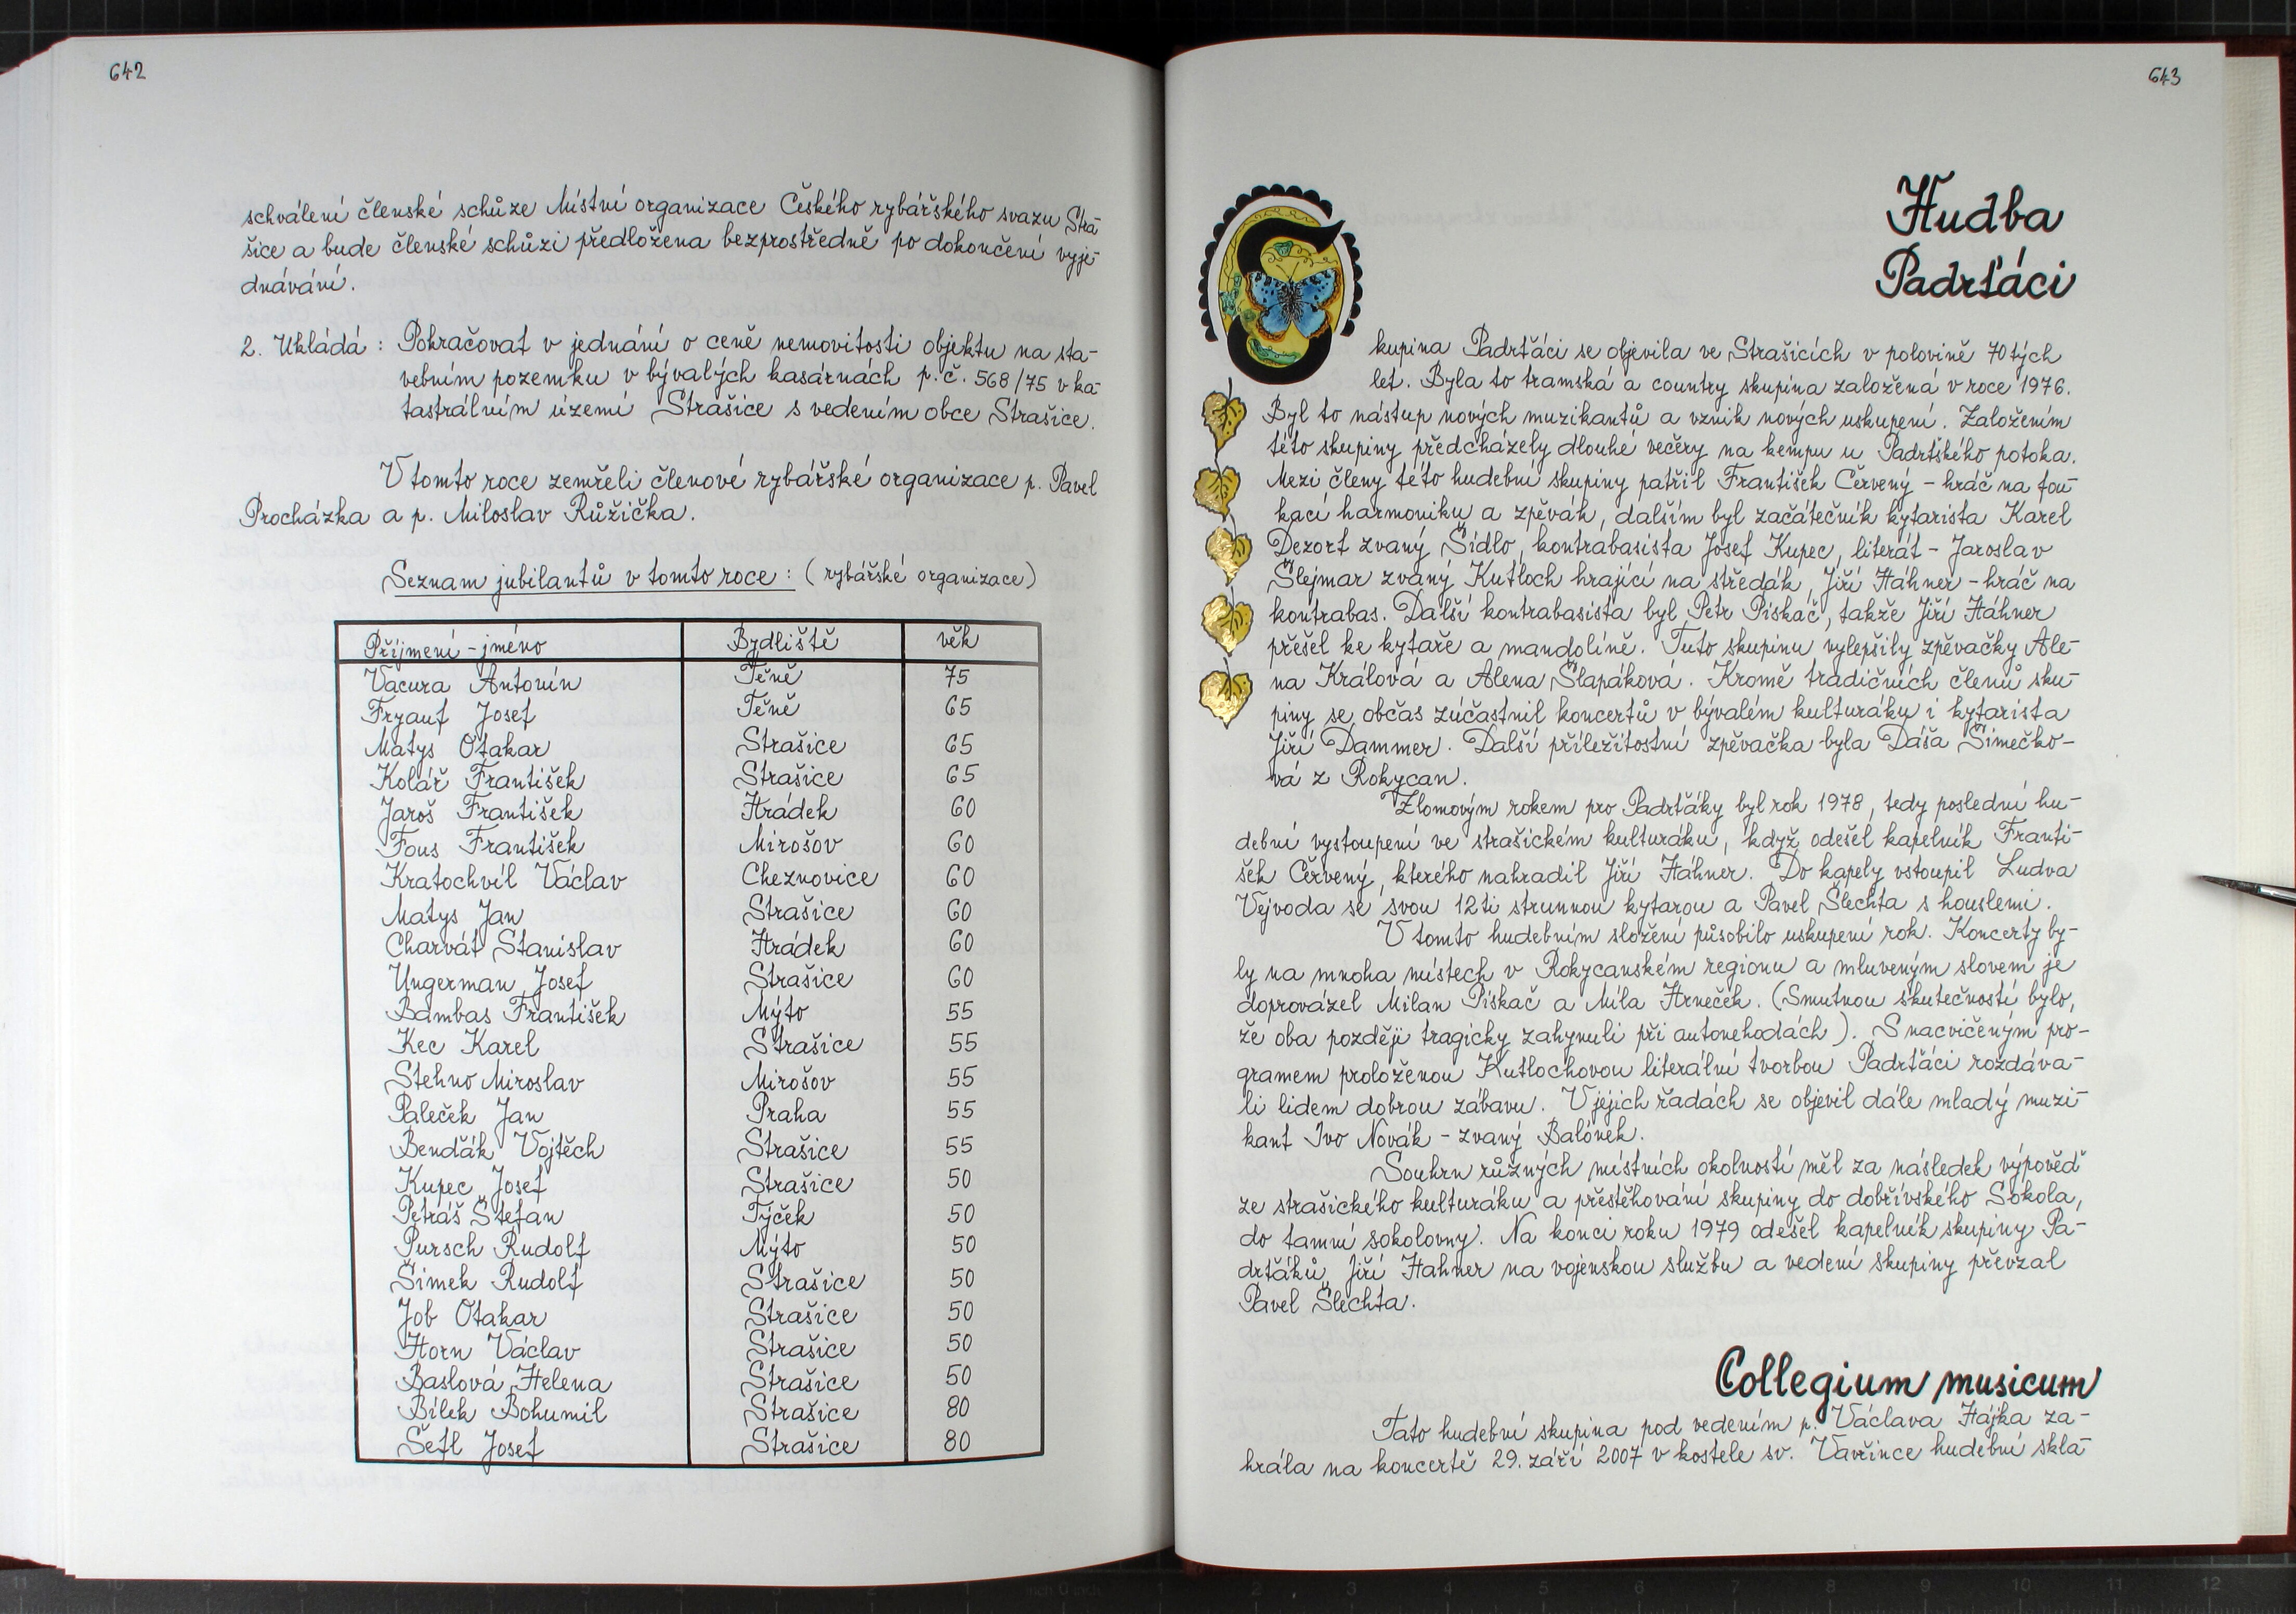 642
schválení členské schůze Místní organizace Českého rybářského svazu Stra-
šice a bude členské schůzi předložena bezprostředně po dokončení vyje-
dnávání.
2. Ukládá : Pokračovat v jednání o ceně nemovitosti objektu na sta-
vebním pozemku v bývalých kasárnách p.č. 568/75 v ka-
tastrálním území Strašice s vedením obce Strašice.
V tomto roce zemřeli členové rybářské organizace p. Pavel
Procházka a p. Miloslav Růžička.
Seznam jubilantů v tomto roce : (rybářské organizace)
Příjmení - jméno Bydliště věk
Vacura Antonín Těně 75
Fryauf Josef Těně 65
Matys Otakar Strašice 65
Kolář František Strašice 65
Jaroš František Hrádek 60
Fous František Mirošov 60
Kratochvíl Václav Cheznovice 60
Matys Jan Strašice 60
Charvát Stanislav Hrádek 60
Ungerman Josef Strašice 60
Bambas František Mýto 55
Kec Karel Strašice 55
Stehno Miroslav Mirošov 55
Paleček Jan Praha 55
Bendák Vojtěch Strašice 55
Kupec Josef Strašice 50
Petráš Štefan Týček 50
Pursch Rudolf Mýto 50
Šimek Rudolf Strašice 50
Job Otakar Strašice 50
Horn Václav Strašice 50
Baslová Helena Strašice 50
Bílek Bohumil Strašice 80
Šefl Josef Strašice 80
643
Hudba
Padrťáci
S
kupina Padrťáci se objevila ve Strašicích v polovině 70tých
let. Byla to tramská a country skupina založená v roce 1976.
Byl to nástup nových muzikantů a vznik nových uskupení. Založením
této skupiny předcházely dlouhé večery na kempu u Padrťského potoka.
Mezi členy této hudební skupiny patřil František Červený - hráč na fou-
kací harmoniku a zpěvák, dalším byl začátečník kytarista Karel
Dezort zvaný Šídlo, kontrabasista Josef Kupec, literát - Jaroslav
Šlejmar zvaný Kutloch hrající na středák, Jiří Háhner - hráč na
kontrabas. Další kontrabasista byl Petr Pískač, takže Jiří Háhner
přešel ke kytaře a mandolíně. Tuto skupinu vylepšily zpěvačky Ale-
na Králová a Alena Šlapáková. Kromě tradičních členů sku-
piny se občas zúčastnil koncertů v bývalém kulturáku i kytarista
Jiří Dammer. Další příležitostní zpěvačka byla Dáša Šimečko-
vá z Rokycan.
Zlomovým rokem pro Padrťáky byl rok 1978, tedy poslední hu-
dební vystoupení ve strašickém kulturáku, když odešel kapelník Franti-
šek Červený, kterého nahradil Jiří Háhner. Do kapely vstoupil Ludva
Vejvoda se svou 12ti strunnou kytarou a Pavel Šlechta s houslemi.
V tomto hudebním složení působilo uskupení rok. Koncerty by-
ly na mnoha místech v Rokycanském regionu a mluveným slovem je
doprovázel Milan Pískač a Míla Hrneček. (Smutnou skutečností bylo,
že oba později tragicky zahynuli při autonehodách). S nacvičeným pro-
gramem proloženou Kutlochovou literální tvorbou Padrťáci rozdáva-
li lidem dobrou zábavu. V jejich řadách se objevil dále mladý muzi-
kant Ivo Novák - zvaný Balónek.
Souhrn různých místních okolností měl za následek výpověď
ze strašického kulturáku a přestěhování skupiny do dobřívského Sokola,
do tamní sokolovny. Na konci roku 1979 odešel kapelník skupiny Pa-
drťáků Jiří Hahner na vojenskou službu a vedení skupiny převzal
Pavel Šlechta.
Collegium musicum
Tato hudební skupina pod vedením p. Václava Hájka za-
hrála na koncertě 29. září 2007 v kostele sv. Vavřince hudební skla-